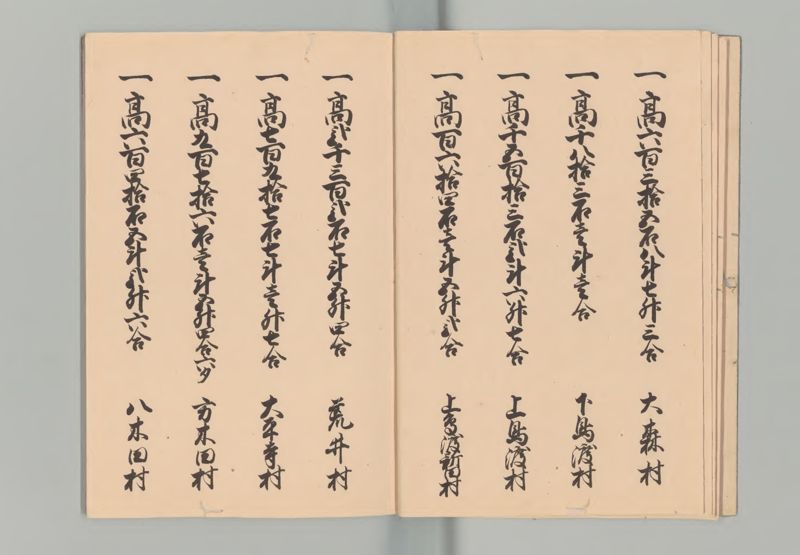 一 高六百三拾五石八斗七升三合 大森村
一 高千八拾三石壱斗壱合 下鳥渡村
一 高千五百拾三石弐斗六升七合 上鳥渡村
一 高百六拾四石壱斗五升弐合 上鳥渡新田村
一 高弐千三百弐石七斗五升四合 荒井村
一 高七百九拾七石七斗壱升七合 大平寺村
一 高九百七拾六石壱斗五升四合六夕 方木田村
一 高六百四拾石五斗弐升六合 八木田村